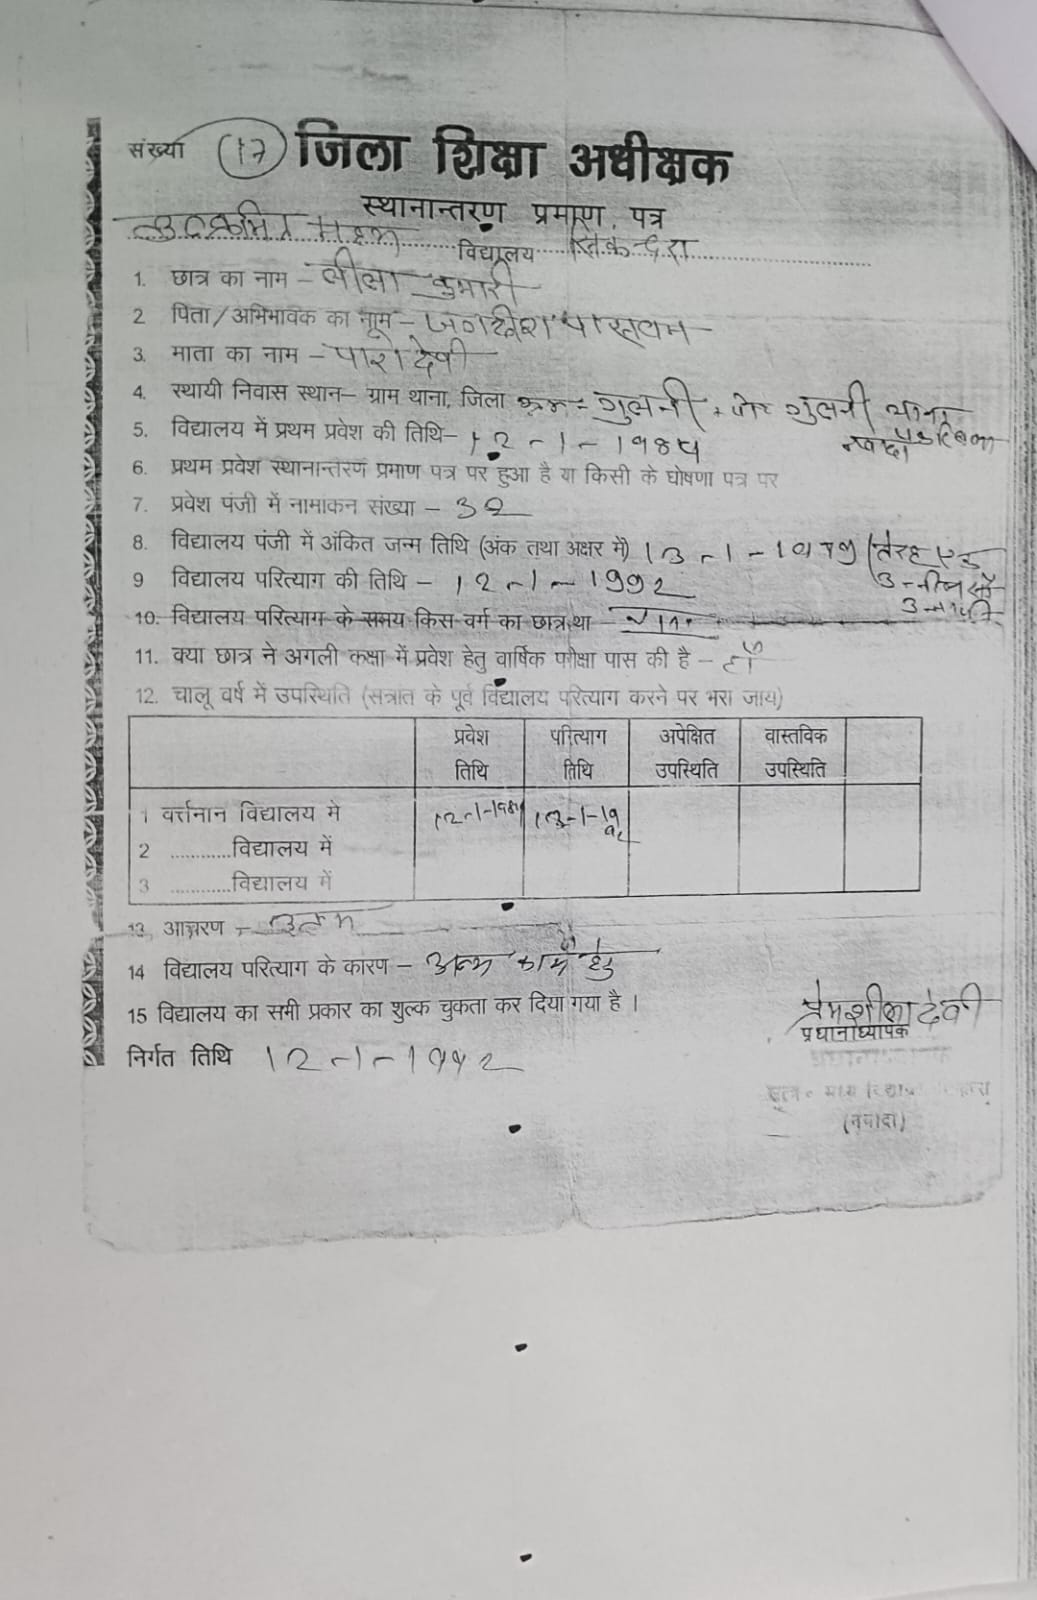 संख्या 17 जिला शिक्षा अधीक्षक
स्थानान्तरण प्रमाण पत्र
उत्क्रमित विद्यालय
1. छात्र का नाम - लीला कुमारी
2 पिता/अभिभावक का नाम - जगदीश पासवान
3. माता का नाम - पारो देवी
4. स्थायी निवास स्थान- ग्राम थाना, जिला गुलनी, गुलनी थाना
5. विद्यालय में प्रथम प्रवेश की तिथि- 12-1-1985
6. प्रथम प्रवेश स्थानान्तरण प्रमाण पत्र पर हुआ है या किसी के घोषणा पत्र पर
7. प्रवेश पंजी में नामांकन संख्या - 32
8. विद्यालय पंजी में अंकित जन्म तिथि (अंक तथा अक्षर में) 13-1-1979 (तेरह एक
9 विद्यालय परित्याग की तिथि - 12-1-1992
10. विद्यालय परित्याग के समय किस वर्ग का छात्र था
11. क्या छात्र ने अगली कक्षा में प्रवेश हेतु वार्षिक परीक्षा पास की है - हाँ
12. चालू वर्ष में उपस्थिति (सत्रांत के पूर्व विद्यालय परित्याग करने पर भरा जाय)
प्रवेश परित्याग अपेक्षित वास्तविक
तिथि तिथि उपस्थिति उपस्थिति
1 वर्त्तनान विद्यालय मे
2 ............विद्यालय में
3 ............विद्यालय में
13. आचरण - उत्तम
14 विद्यालय परित्याग के कारण - अन्य कार्य हेतु
15 विद्यालय का सभी प्रकार का शुल्क चुकता कर दिया गया है ।
प्रेमशीला देवी
प्रधानाध्यापक
निर्गत तिथि 12-1-1992
(नवादा)